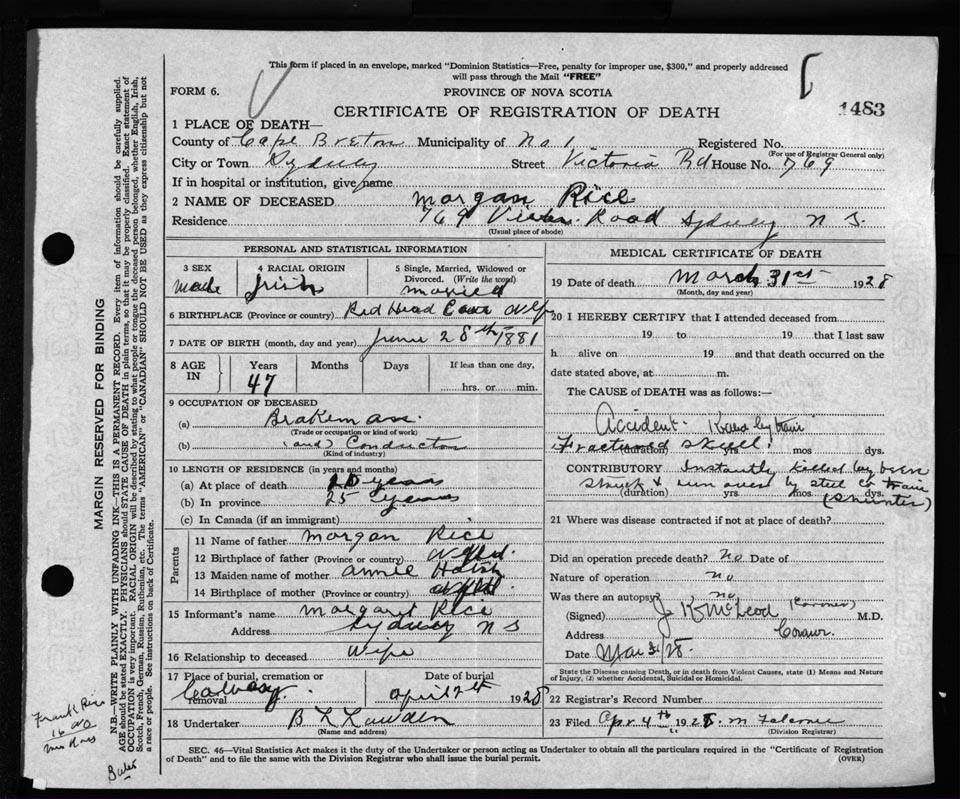 This form if placed in an envelope, marked "Dominion Statistics—Free, penalty for improper use, $300," and properly addressed
will pass through the Mail "FREE"
FORM 6.
PROVINCE OF NOVA SCOTIA
CERTIFICATE OF REGISTRATION OF DEATH
1483
1 PLACE OF DEATH—
County of Cape Breton Municipality of No 1 Registered No.
(For use of Registrar General only)
City or Town Sydney Street Victoria Rd House No. 769
If in hospital or institution, give name
2 NAME OF DECEASED Morgan Rice
Residence 769 Victoria Road Sydney N S.
(Usual place of abode)
PERSONAL AND STATISTICAL INFORMATION
3 SEX Male
4 RACIAL ORIGIN Irish
5 Single, Married, Widowed or Divorced. (Write the word) Married
6 BIRTHPLACE (Province or country) Red Head Nfld
7 DATE OF BIRTH (month, day and year) June 28th 1881
8 AGE IN Years 47 Months Days If less than one day, hrs. or min.
9 OCCUPATION OF DECEASED
(a) Brakeman
(Trade or occupation or kind of work)
(b) (and) Conductor
(Kind of industry)
10 LENGTH OF RESIDENCE (in years and months)
(a) At place of death years
(b) In province 25 years
(c) In Canada (if an immigrant)
Parents
11 Name of father Morgan Rice
12 Birthplace of father (Province or country) Nfld.
13 Maiden name of mother Annie
14 Birthplace of mother (Province or country) Nfld
15 Informant's name Margaret Rice
Address Sydney N S
16 Relationship to deceased Wife
17 Place of burial, cremation or removal Calvary Date of burial April 2nd 1928
18 Undertaker B L
(Name and address)
MEDICAL CERTIFICATE OF DEATH
19 Date of death March 31st 1928
(Month, day and year)
20 I HEREBY CERTIFY that I attended deceased from
19 to 19 that I last saw
h alive on 19 and that death occurred on the
date stated above, at m.
The CAUSE of DEATH was as follows:
Accident. Killed by train
Fractured Skull.
(duration) yrs. mos dys.
CONTRIBUTORY Instantly killed by been
struck & run over by steel co train
(duration) yrs. mos. dys.
(Shunter)
21 Where was disease contracted if not at place of death?
Did an operation precede death? no Date of
Nature of operation no
Was there an autopsy? no
(Signed) J K McLeod (Coroner) M.D.
Address Coroner.
Date Mar 31/28.
State the Disease causing Death, or in death from Violent Causes, state (1) Means and Nature of Injury, (2) whether Accidental, Suicidal or Homicidal.
22 Registrar's Record Number
23 Filed Apr 4th 1928. M
(Division Registrar)
SEC. 46—Vital Statistics Act makes it the duty of the Undertaker or person acting as Undertaker to obtain all the particulars required in the "Certificate of Registration
of Death" and to file the same with the Division Registrar who shall issue the burial permit.
(OVER)
MARGIN RESERVED FOR BINDING
N.B.—WRITE PLAINLY WITH UNFADING INK—THIS IS A PERMANENT RECORD. Every item of information should be carefully supplied.
AGE should be stated EXACTLY. PHYSICIANS should STATE CAUSE OF DEATH in plain terms, so that it may be properly classified. Exact statement of
OCCUPATION is very important. RACIAL ORIGIN will be described by stating to what people or tongue the deceased person belonged, whether English, Irish,
Scotch, French, German, Russian, Ruthenian, etc. The terms "AMERICAN" or "CANADIAN" SHOULD NOT BE USED as they express citizenship but not
a race or people. See instructions on back of Certificate.
Frank Rice
16